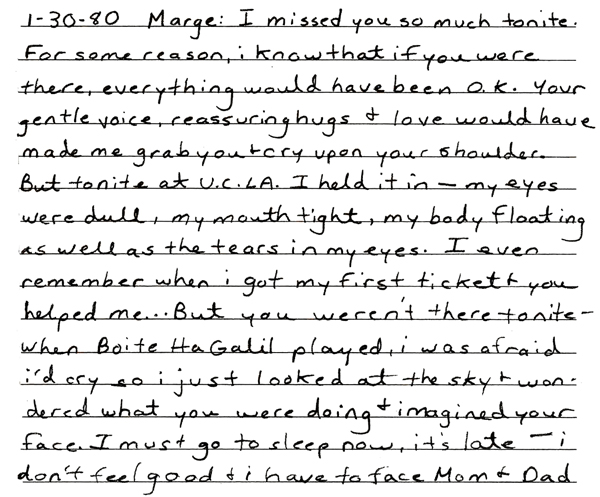 1-30-80 Marge: I missed you so much tonite.
For some reason, i know that if you were
there, everything would have been O.K. Your
gentle voice, reassuring hugs & love would have
made me grab you & cry upon your shoulder.
But tonite at U.C.L.A. I held it in – my eyes
were dull, my mouth tight, my body floating
as well as the tears in my eyes. I even
remember when i got my first ticket & you
helped me... But you weren't there tonite –
when Boite HaGalil played, i was afraid
i'd cry so i just looked at the sky & won-
dered what you were doing & imagined your
face. I must go to sleep now, it's late – i
don't feel good & i have to face Mom & Dad